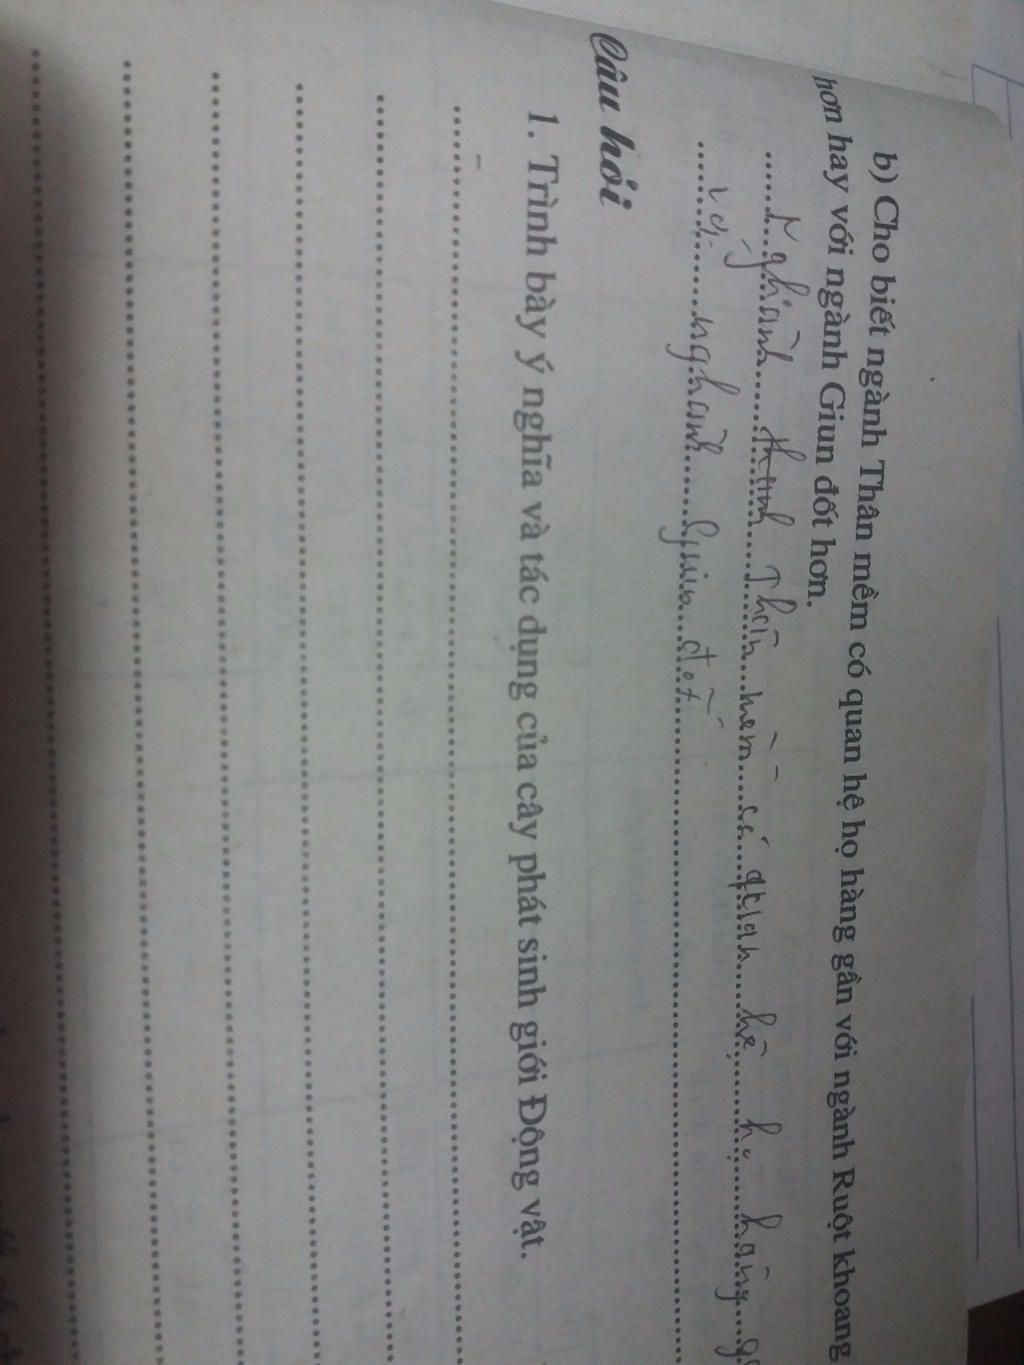 b) Cho biết ngành Thân mềm có quan hệ họ hàng gần với ngành Ruột khoang
hơn hay với ngành Giun đốt hơn.
Nghành thanh Thân mềm có quan hệ họ hàng
với nghành giun đốt
Câu hỏi
1. Trình bày ý nghĩa và tác dụng của cây phát sinh giới Động vật.